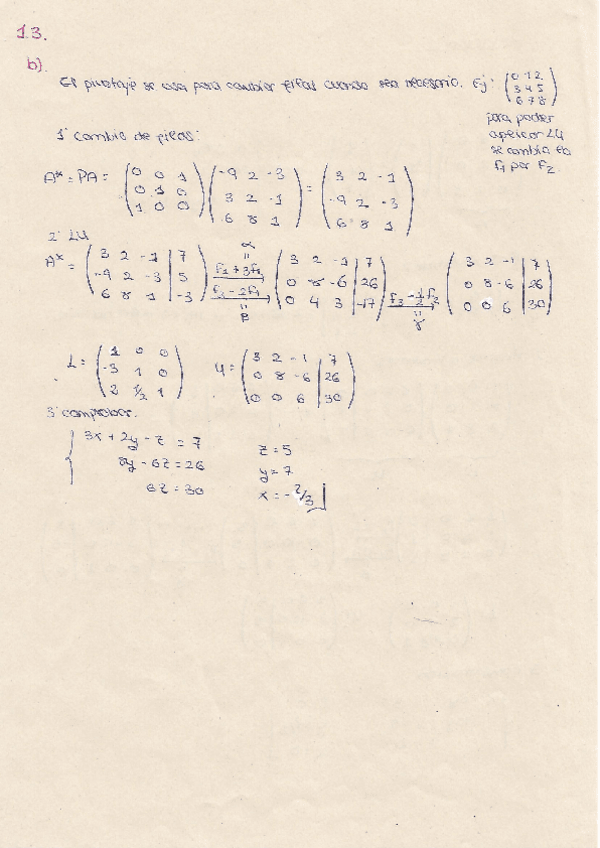 13.
b).
El pivotaje se usa para cambiar filas cuando sea necesario. Ej: (0 1 2
3 4 5
6 7 8)
para poder
aplicar LU
se cambia la
F1 por F2
1º Cambio de filas:
A* = PA = (0 0 1
0 1 0
1 0 0) (-9 2 -3
3 2 -1
6 8 1) = (3 2 -1
-9 2 -3
6 8 1)
2º LU
A* = (3 2 -1 | 7
-9 2 -3 | 5
6 8 1 | -3) α = F2+3F1 F3-2F1 = β (3 2 -1 | 7
0 8 -6 | 26
0 4 3 | -17) F3-1/2F2 = γ (3 2 -1 | 7
0 8 -6 | 26
0 0 6 | 30)
L = (1 0 0
-3 1 0
2 1/2 1) U = (3 2 -1 | 7
0 8 -6 | 26
0 0 6 | 30)
3º comprobar.
3x + 2y - z = 7 z = 5
8y - 6z = 26 y = 7
6z = 30 x = -2/3